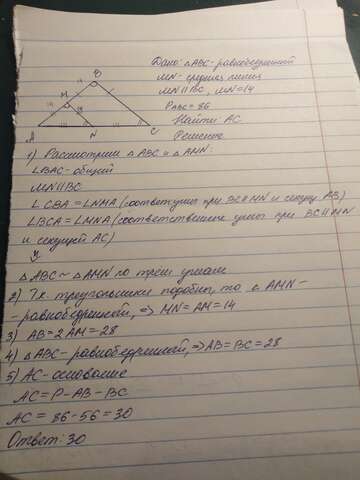 B
14
M
14
14
A
N
C
Дано: △ABC - равнобедренный
MN - средняя линия
MN || BC, MN = 14
P ABC = 86
Найти: AC
Решение
1) Рассмотрим △ABC и △AMN:
∠BAC - общий
MN || BC
∠CBA = ∠NMA (соотв. углы при BC || MN и секущ AB)
∠BCA = ∠MNA (соответственные углы при BC || MN
и секущей AC)
△ABC ~ △AMN по трем углам
2) Т.к треугольники подобны, то и △AMN -
- равнобедренный, => MN = AM = 14
3) AB = 2 AM = 28
4) △ABC - равнобедренный, => AB = BC = 28
5) AC - основание
AC = P - AB - BC
AC = 86 - 56 = 30
Ответ: 30